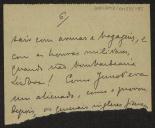 6)
sair com armas e bagagens, e
com as honras militares,
quando não bombardearia
Lisboa! Como Junot era
um alienado, como, provou
depois, os generais inglezes